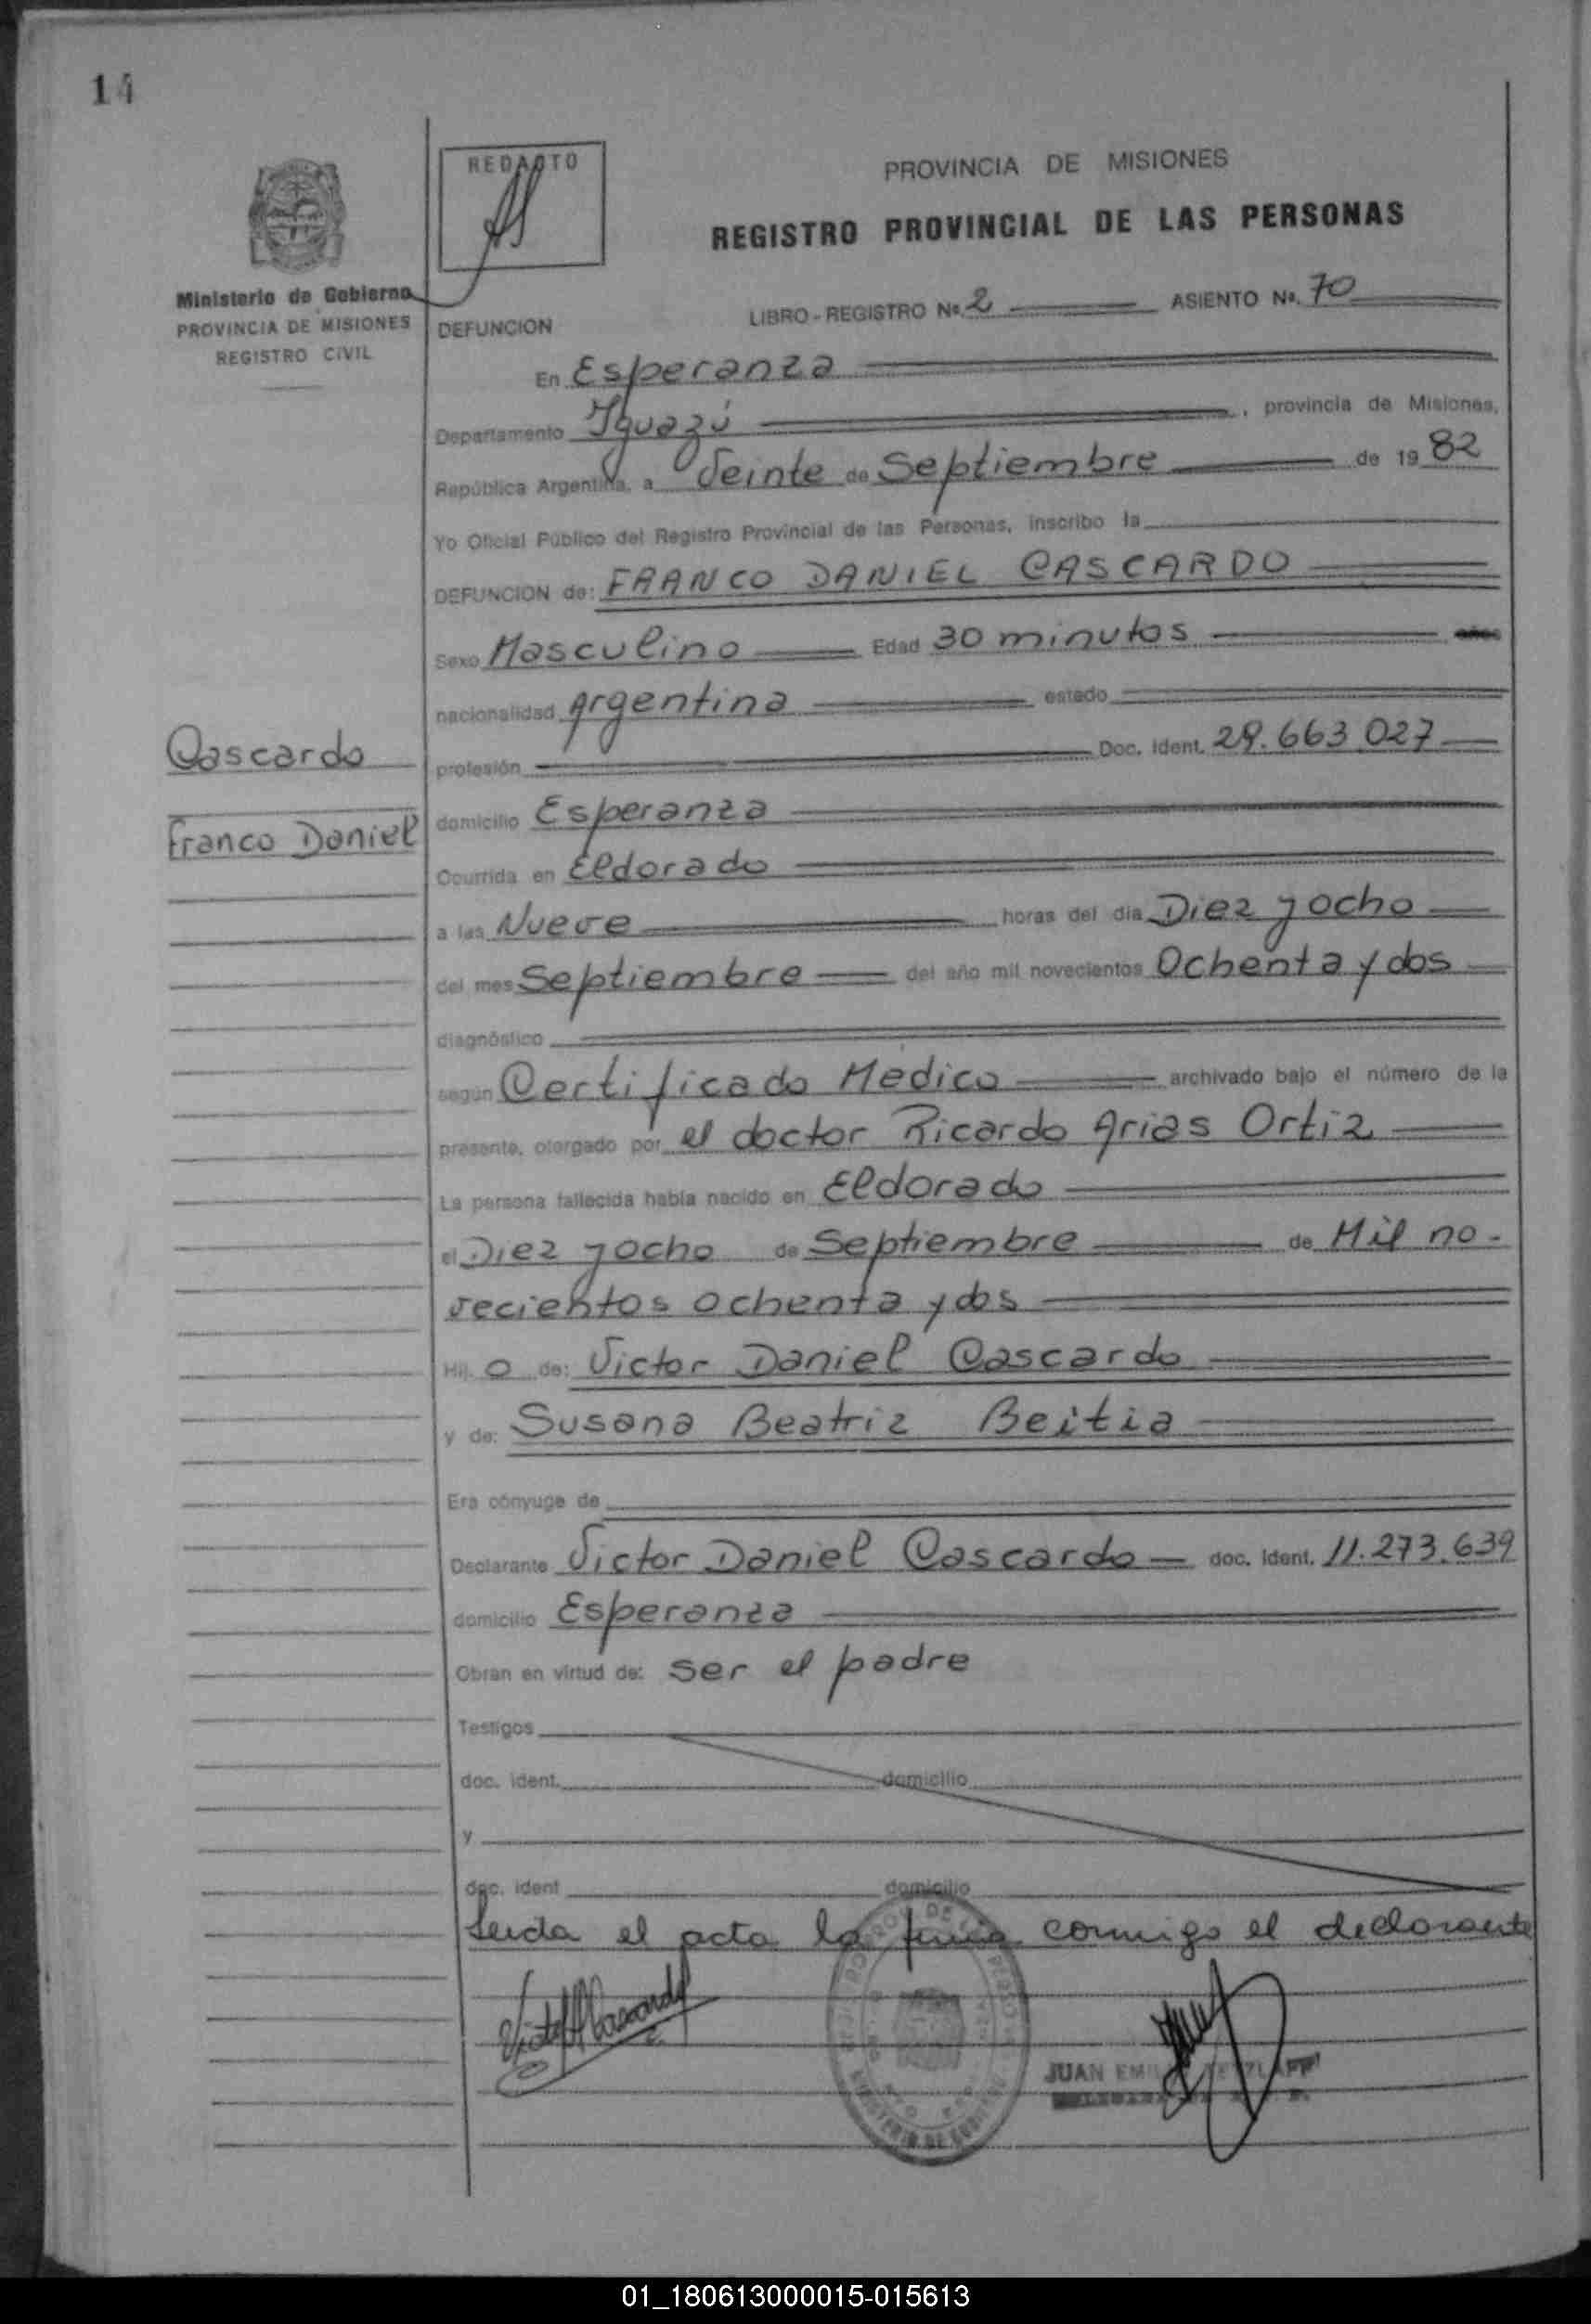 14
REDACTO
PROVINCIA DE MISIONES
REGISTRO PROVINCIAL DE LAS PERSONAS
Ministerio de Gobierno
PROVINCIA DE MISIONES
REGISTRO CIVIL
LIBRO-REGISTRO Nº. 2 ASIENTO Nº. 70
DEFUNCION
En Esperanza
Departamento Iguazú, provincia de Misiones,
República Argentina, a Veinte de Septiembre de 1982
Yo Oficial Público del Registro Provincial de las Personas, inscribo la
DEFUNCION de: FRANCO DANIEL CASCARDO
Sexo Masculino Edad 30 minutos años
nacionalidad Argentina estado
Cascardo
Franco Daniel
profesión Doc. Ident. 29.663.027
domicilio Esperanza
Ocurrida en Eldorado
a las Nueve horas del día Diez y ocho
del mes Septiembre del año mil novecientos Ochenta y dos
diagnóstico
según Certificado Medico archivado bajo el número de la
presente, otorgado por el doctor Ricardo Arias Ortiz
La persona fallecida había nacido en Eldorado
el Diez y ocho de Septiembre de Mil no-
vecientos ochenta y dos
Hij o de: Victor Daniel Cascardo
y de: Susana Beatriz Beitia
Era cónyuge de
Declarante Victor Daniel Cascardo doc. ident. 11.273.639
domicilio Esperanza
Obran en virtud de: ser el padre
Testigos
doc. ident. domicilio
y
doc. ident domicilio
Leida el acta la firma conmigo el declarante
JUAN
01_180613000015-015613